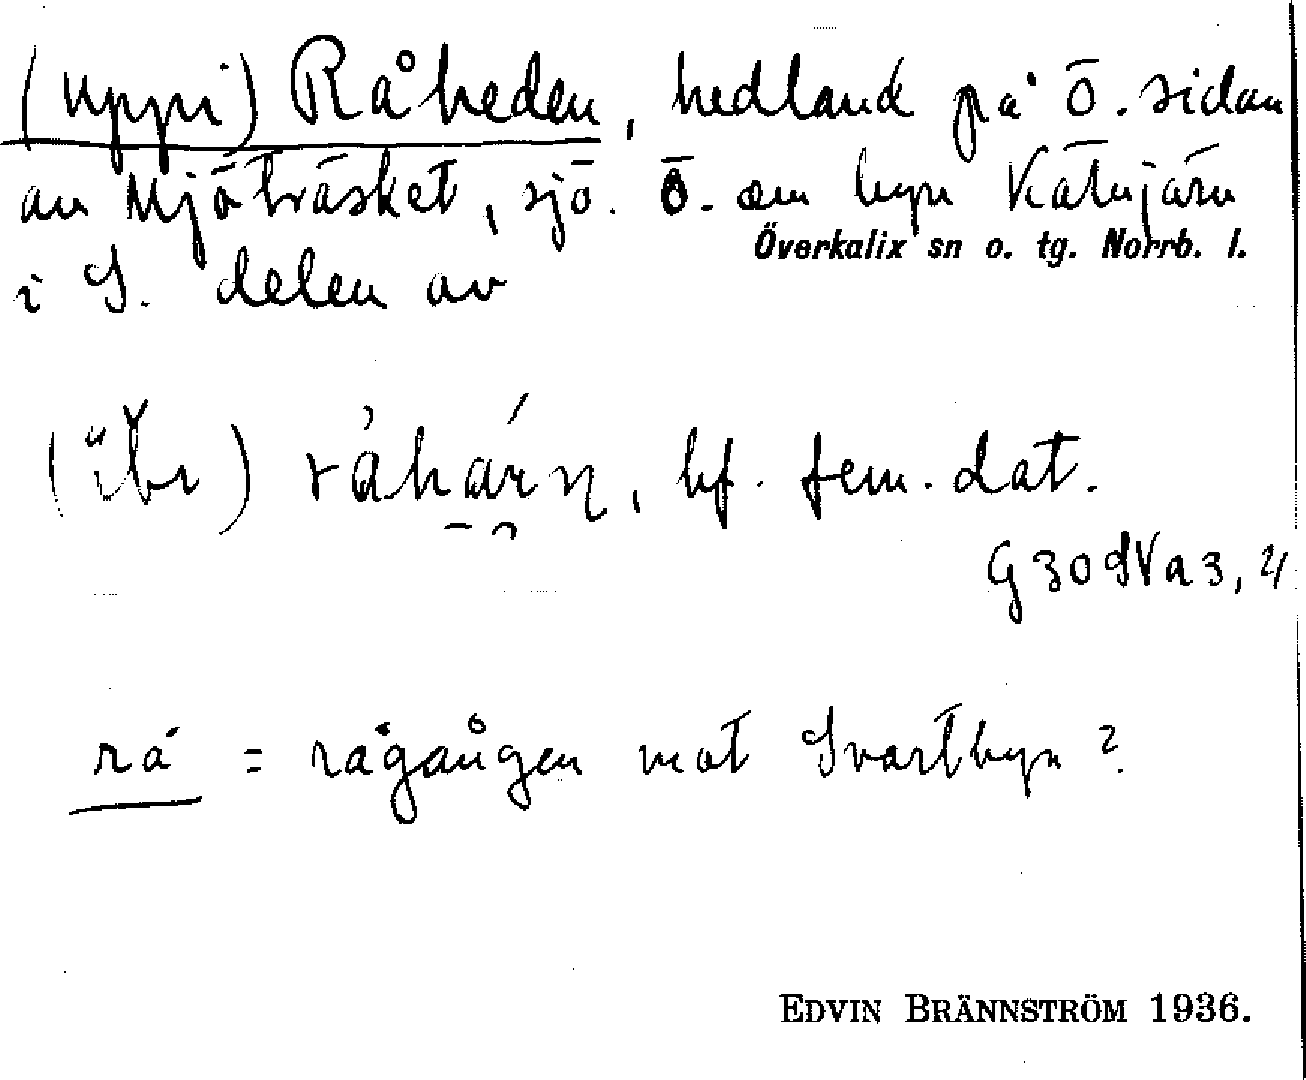 (uppi) Råheden, hedland på Ö. sidan
av Mjöträsket, sjö. Ö. om byn Kätujärv
i S. delen av
Överkalix sn o. tg. Norrb. l.
bf. fem. dat.
rå = rågången mot Svartbyn?
EDVIN BRÄNNSTRÖM 1936.